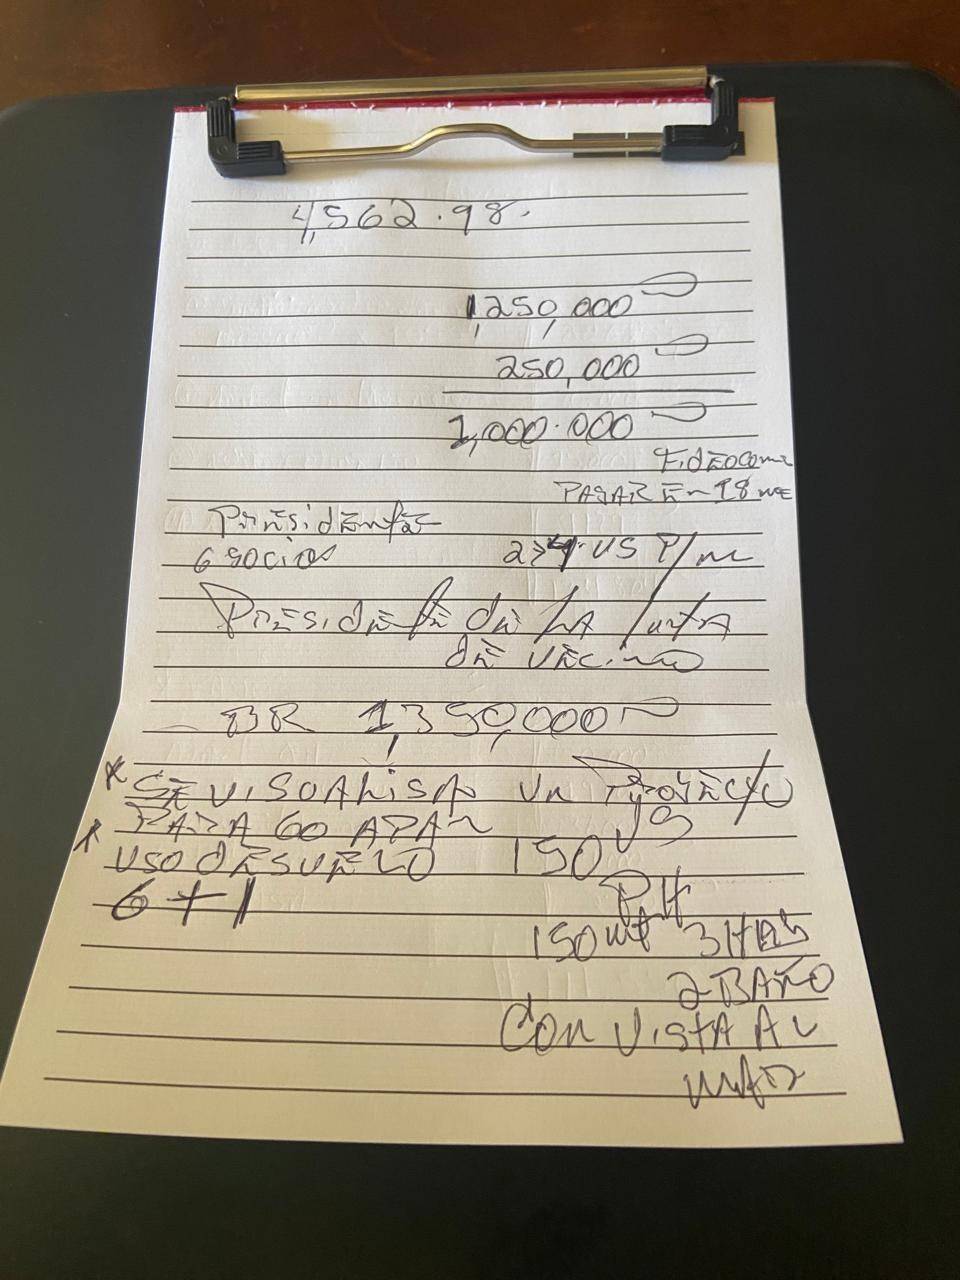 4,562.98.
1,250,000
250,000
1,000.000
Fideocomi
PAGAR En 18 me
Presidente
6 socios
US P/m
Presidente de LA Junta
de vecino
BR 1,350,000
* SE VISOALISA Un Proyecto
PARA 60 APAr
* USO dESUELO 150 US
6+1 PH
150 mt 3 HAB
2 BAÑO
Con VistA AL
mar